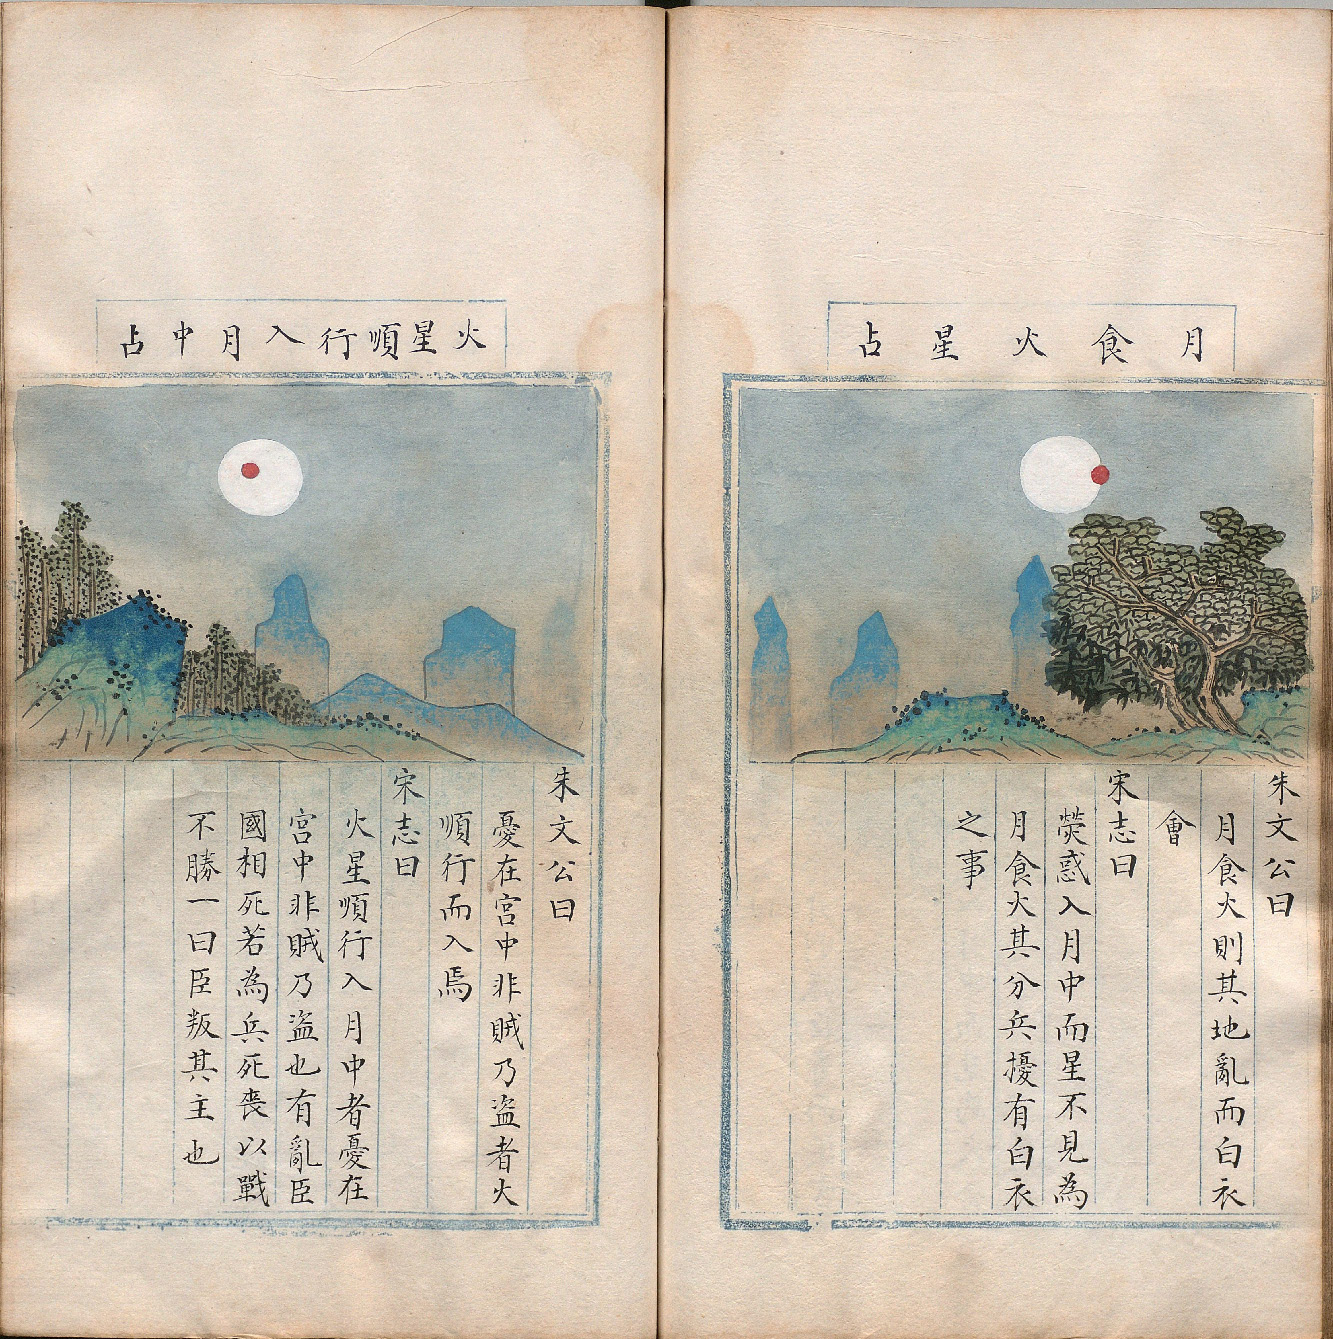 月食火星占
朱文公曰
月食火則其地亂而白衣
會
宋志曰
熒惑入月中而星不見為
月食火其分兵擾有白衣
之事
火星順行入月中占
朱文公曰
憂在宮中非賊乃盜者火
順行而入焉
宋志曰
火星順行入月中者憂在
宮中非賊乃盜也有亂臣
國相死若為兵死喪以戰
不勝一曰臣叛其主也